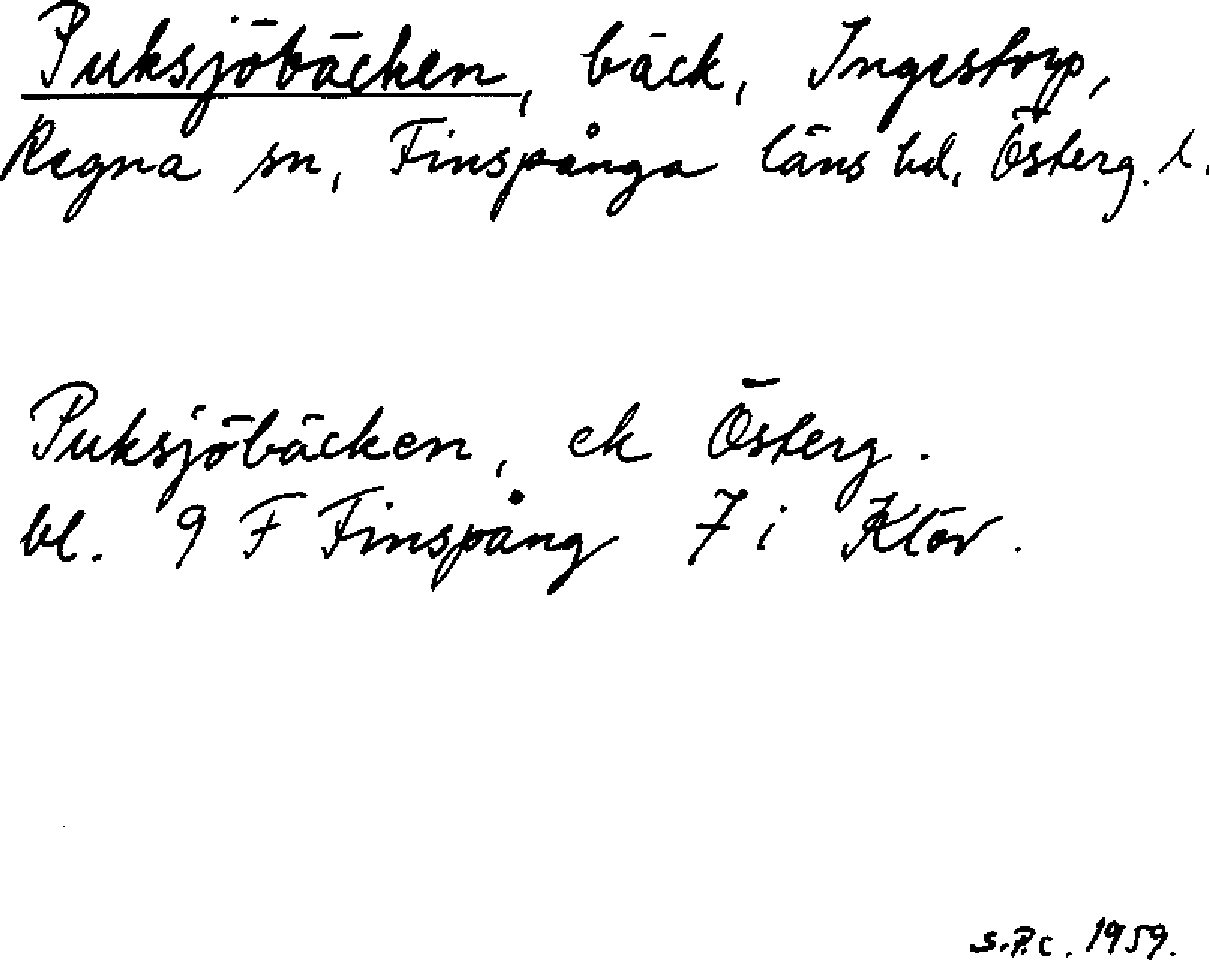 Puksjöbäcken, bäck, Ingestorp,
Regna sn, Finspånga läns hd, Österg. l.
Puksjöbäcken, ek Österg.
bl. 9 F Finspång 7 i Klöv.
S.P.C. 1959.